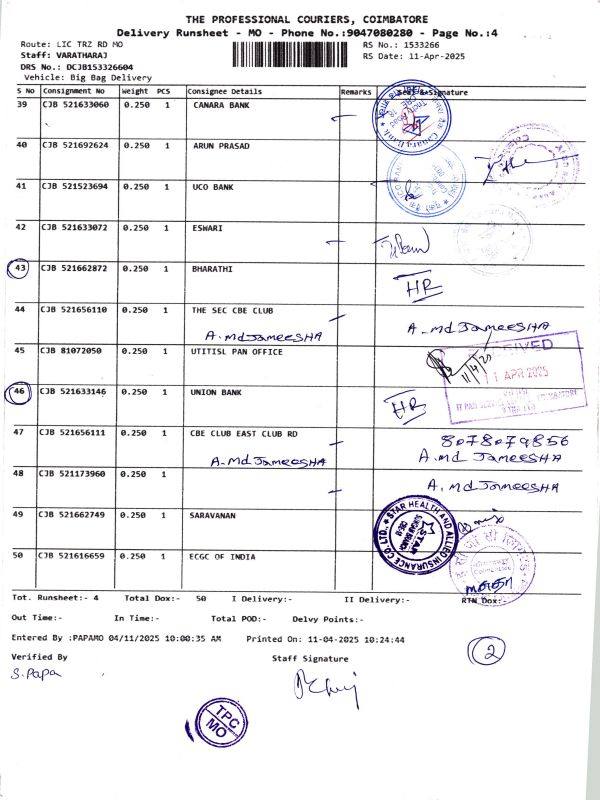 THE PROFESSIONAL COURIERS, COIMBATORE
Delivery Runsheet - MO - Phone No.:9047080280 - Page No.:4
Route: LIC TRZ RD MO
RS No.: 1533266
Staff: VARATHARAJ
RS Date: 11-Apr-2025
DRS No.: DCJB153326604
Vehicle: Big Bag Delivery
S No Consignment No Weight PCS Consignee Details Remarks Seal & Signature
39 CJB 521633060 0.250 1 CANARA BANK
40 CJB 521692624 0.250 1 ARUN PRASAD
41 CJB 521523694 0.250 1 UCO BANK
42 CJB 521633072 0.250 1 ESWARI
43 CJB 521662872 0.250 1 BHARATHI
HR
44 CJB 521656110 0.250 1 THE SEC CBE CLUB
A.Md Jameesha A.Md Jameesha
45 CJB 81072050 0.250 1 UTITISL PAN OFFICE
11/4/25
1 APR 2025
46 CJB 521633146 0.250 1 UNION BANK
HR
47 CJB 521656111 0.250 1 CBE CLUB EAST CLUB RD
8078079856
A.Md Jameesha A.Md Jameesha
48 CJB 521173960 0.250 1
A.Md Jameesha
49 CJB 521662749 0.250 1 SARAVANAN
STAR HEALTH AND ALLIED INSURANCE CO LTD.,
STAR
50 CJB 521616659 0.250 1 ECGC OF INDIA
Tot. Runsheet:- 4 Total Dox:- 50 I Delivery:- II Delivery:- RTN Dox:-
Out Time:- In Time:- Total POD:- Delvy Points:-
Entered By :PAPAMO 04/11/2025 10:00:35 AM Printed On: 11-04-2025 10:24:44
Verified By Staff Signature
2
S.Papa
TPC
MO